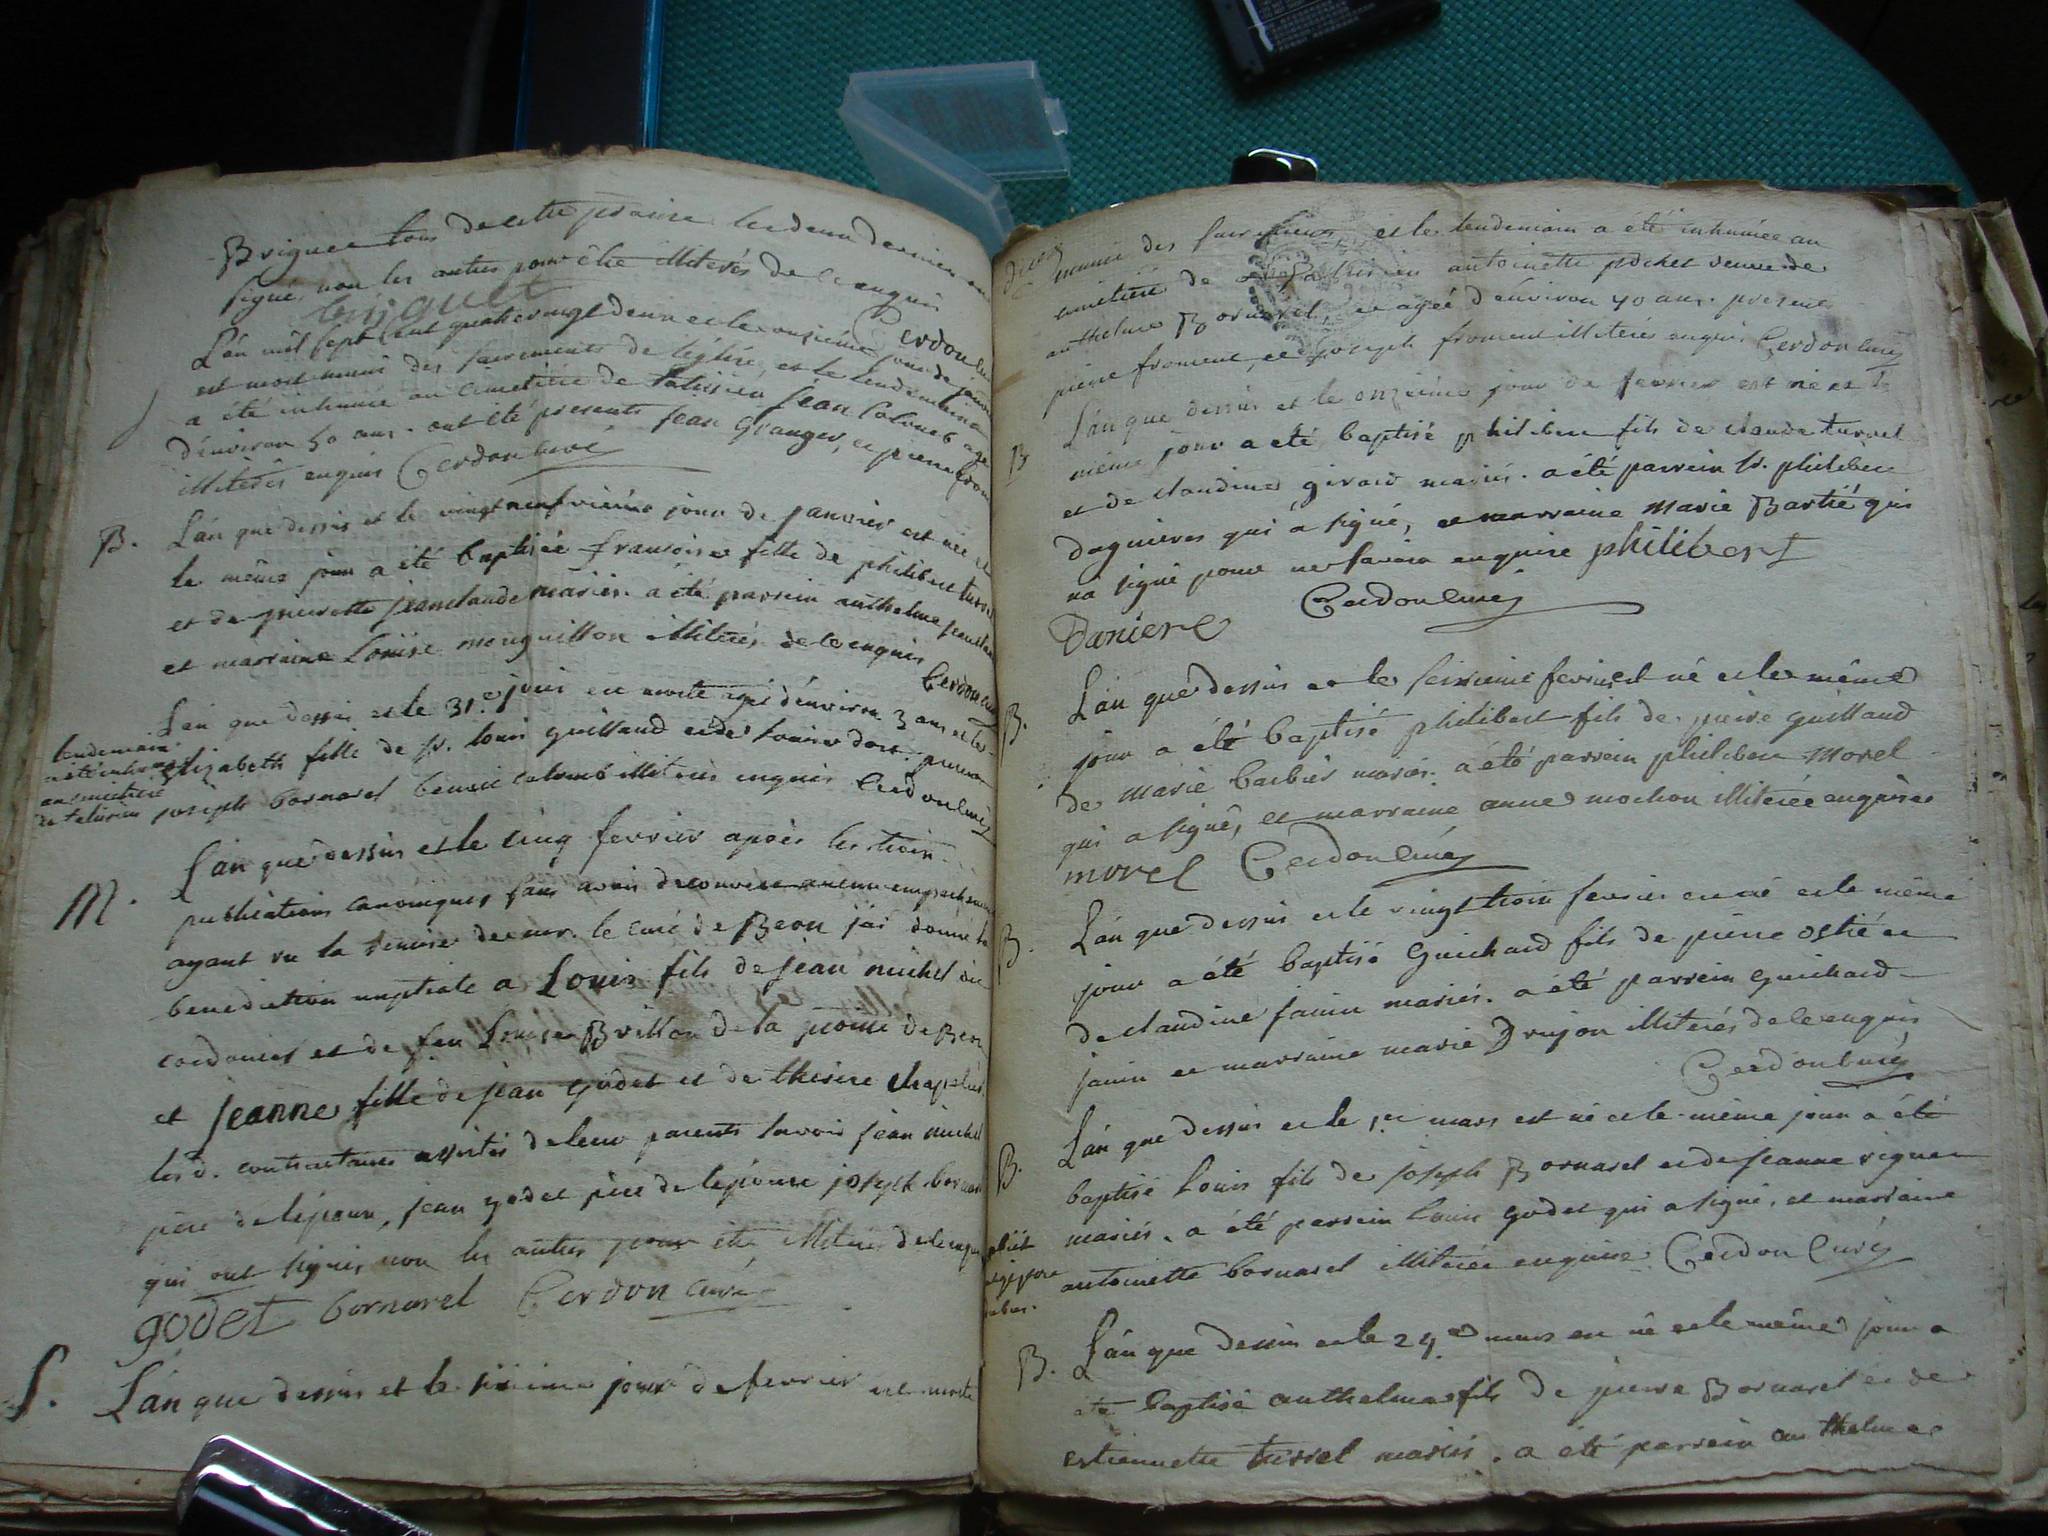 Briguet tous de cette paroisse les deux derniers ont
signé, non les autres pour être illiterés de ce enquis
briguet Cerdon curé
L'án mil sept cent quatre vingt deux et le onzième jour de janvier
est mort muni des sacrements de l'église, et le lendemain
a été inhumé au cimetière de talissieu jean Colomb agé
d'énviron 50 ans. ont été presents jean Granger, et pierre from
illiterés enquis Cerdon curé
B. L'án que dessus et le vingt neufvième jour de janvier est née et
le même jour a été baptisée francoise fille de philibert turrel
et de pierrette jeanclaude mariés. a été parrein anthelme jeanclaude
et marraine Loüise monguillon illiterés de ce enquis Cerdon curé
L'an que dessus et le 31e jour est morte agée d'énviron 3 ans et le
lendemain
a été inhumée
au cimetiere
de talissieu
Elizabeth fille de sr. louis guillaud et de louise
joseph bornarel benoit colomb illiterés enquis Cerdon curé
M. L'an que dessus et le cinq fevrier après les trois
publications canoniques sans avoir decouvert aucun empechement
ayant vu la remise de mr. le curé de Beon j'ai donné la
benediction nuptiale a Louis fils de jean michel
cordonier et de feu Louise Brillon de la paroisse de Beon
et jeanne fille de jean godet et de therese chapelu
les d. contractants assistés de leur parents savoir jean michel
père de l'époux, jean godet père de l'épouse joseph bornarel
qui ont signés non les autres pour être illiterés de ce enquis
godet bornarel Cerdon curé
S. L'án que dessus et le sixieme jour de fevrier est morte
munie des sacrements et le lendemain a été inhumée au
cimetière de Talissieu antoinette pochet veuve de
anthelme Bornarel, agée d'énviron 40 ans. presents
pierre froment, et joseph froment illiterés enquis Cerdon curé
B L'án que dessus et le onzieme jour de fevrier est né et le
même jour a été baptisé philibert fils de claude turrel
et de claudine girard mariés. a été parrein sr. philibert
dagnieres qui a signé, et marraine marie Bartié qui
n'a signé pour ne savoir enquise philibert
Daniere Cerdon curé
B. L'án que dessus et le seizieme fevrier est né et le même
jour a été baptisé philibert fils de pierre guillaud
de marie barbier mariés. a été parrein philibert morel
qui a signé, et marraine anne mochon illiterée enquise
morel Cerdon curé
B. L'án que dessus et le vingt trois fevrier est né et le même
jour a été baptisé Guichard fils de pierre ostié et
de claudine janin mariés. a été parrein guichard
janin et marraine marie Drujon illiterés de ce enquis
Cerdon curé
B. L'án que dessus et le 1er mars est né et le même jour a été
baptisé Louis fils de joseph Bornarel et de jeanne viguet
mariés. a été parrein Louis godet qui a signé, et marraine
antoinette bornarel illiterée enquise Cerdon Curé
B. L'án que dessus et le 24e mars est né et le même jour a
été baptisé anthelme fils de pierre Bornarel et de
estiennette turrel mariés. a été parrein anthelme